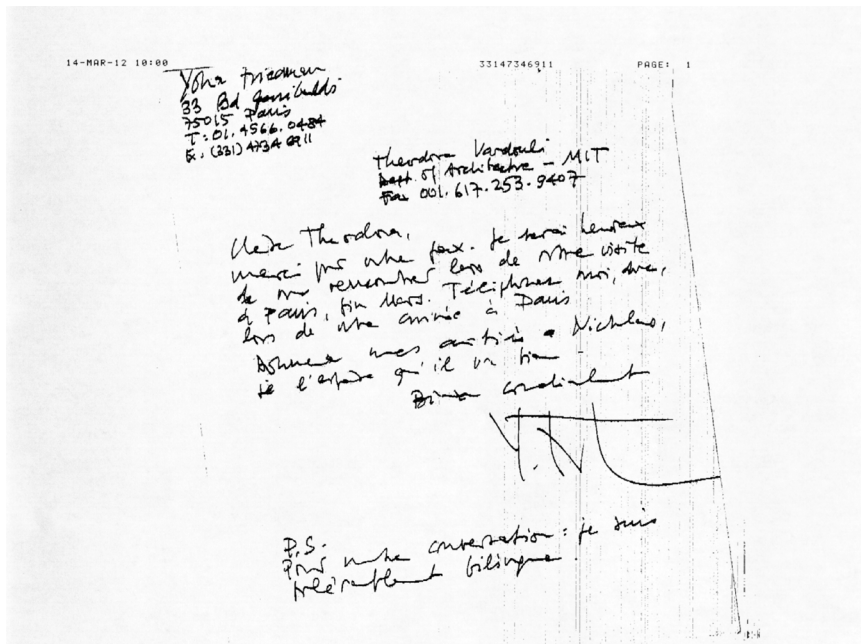 14-MAR-12 10:00 33147346911 PAGE: 1
Yona Friedman
33 Bd Garibaldi
75015 Paris
T: 01.4566.0484
Fx. (331) 4734 6911
Theodora Vardouli
Dept. of Architecture - MIT
Fax 001.617.253.9407
Chère Theodora,
merci pour votre fax. Je serai heureux
de vous rencontrer lors de votre visite
à Paris, fin Mars. Téléphonez moi, donc,
lors de votre arrivée à Paris
Donnez mes amitiés a Nicholas,
je l'espère qu'il va bien -
Bien cordialement
P.S.
Pour notre conversation: je suis
tolérablement bilingue.